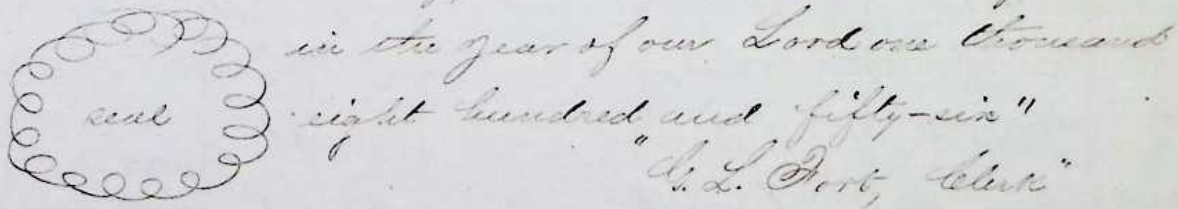 in the year of our Lord one thousand
seal
eight hundred and fifty-six"
"G. L. Fort, Clerk"